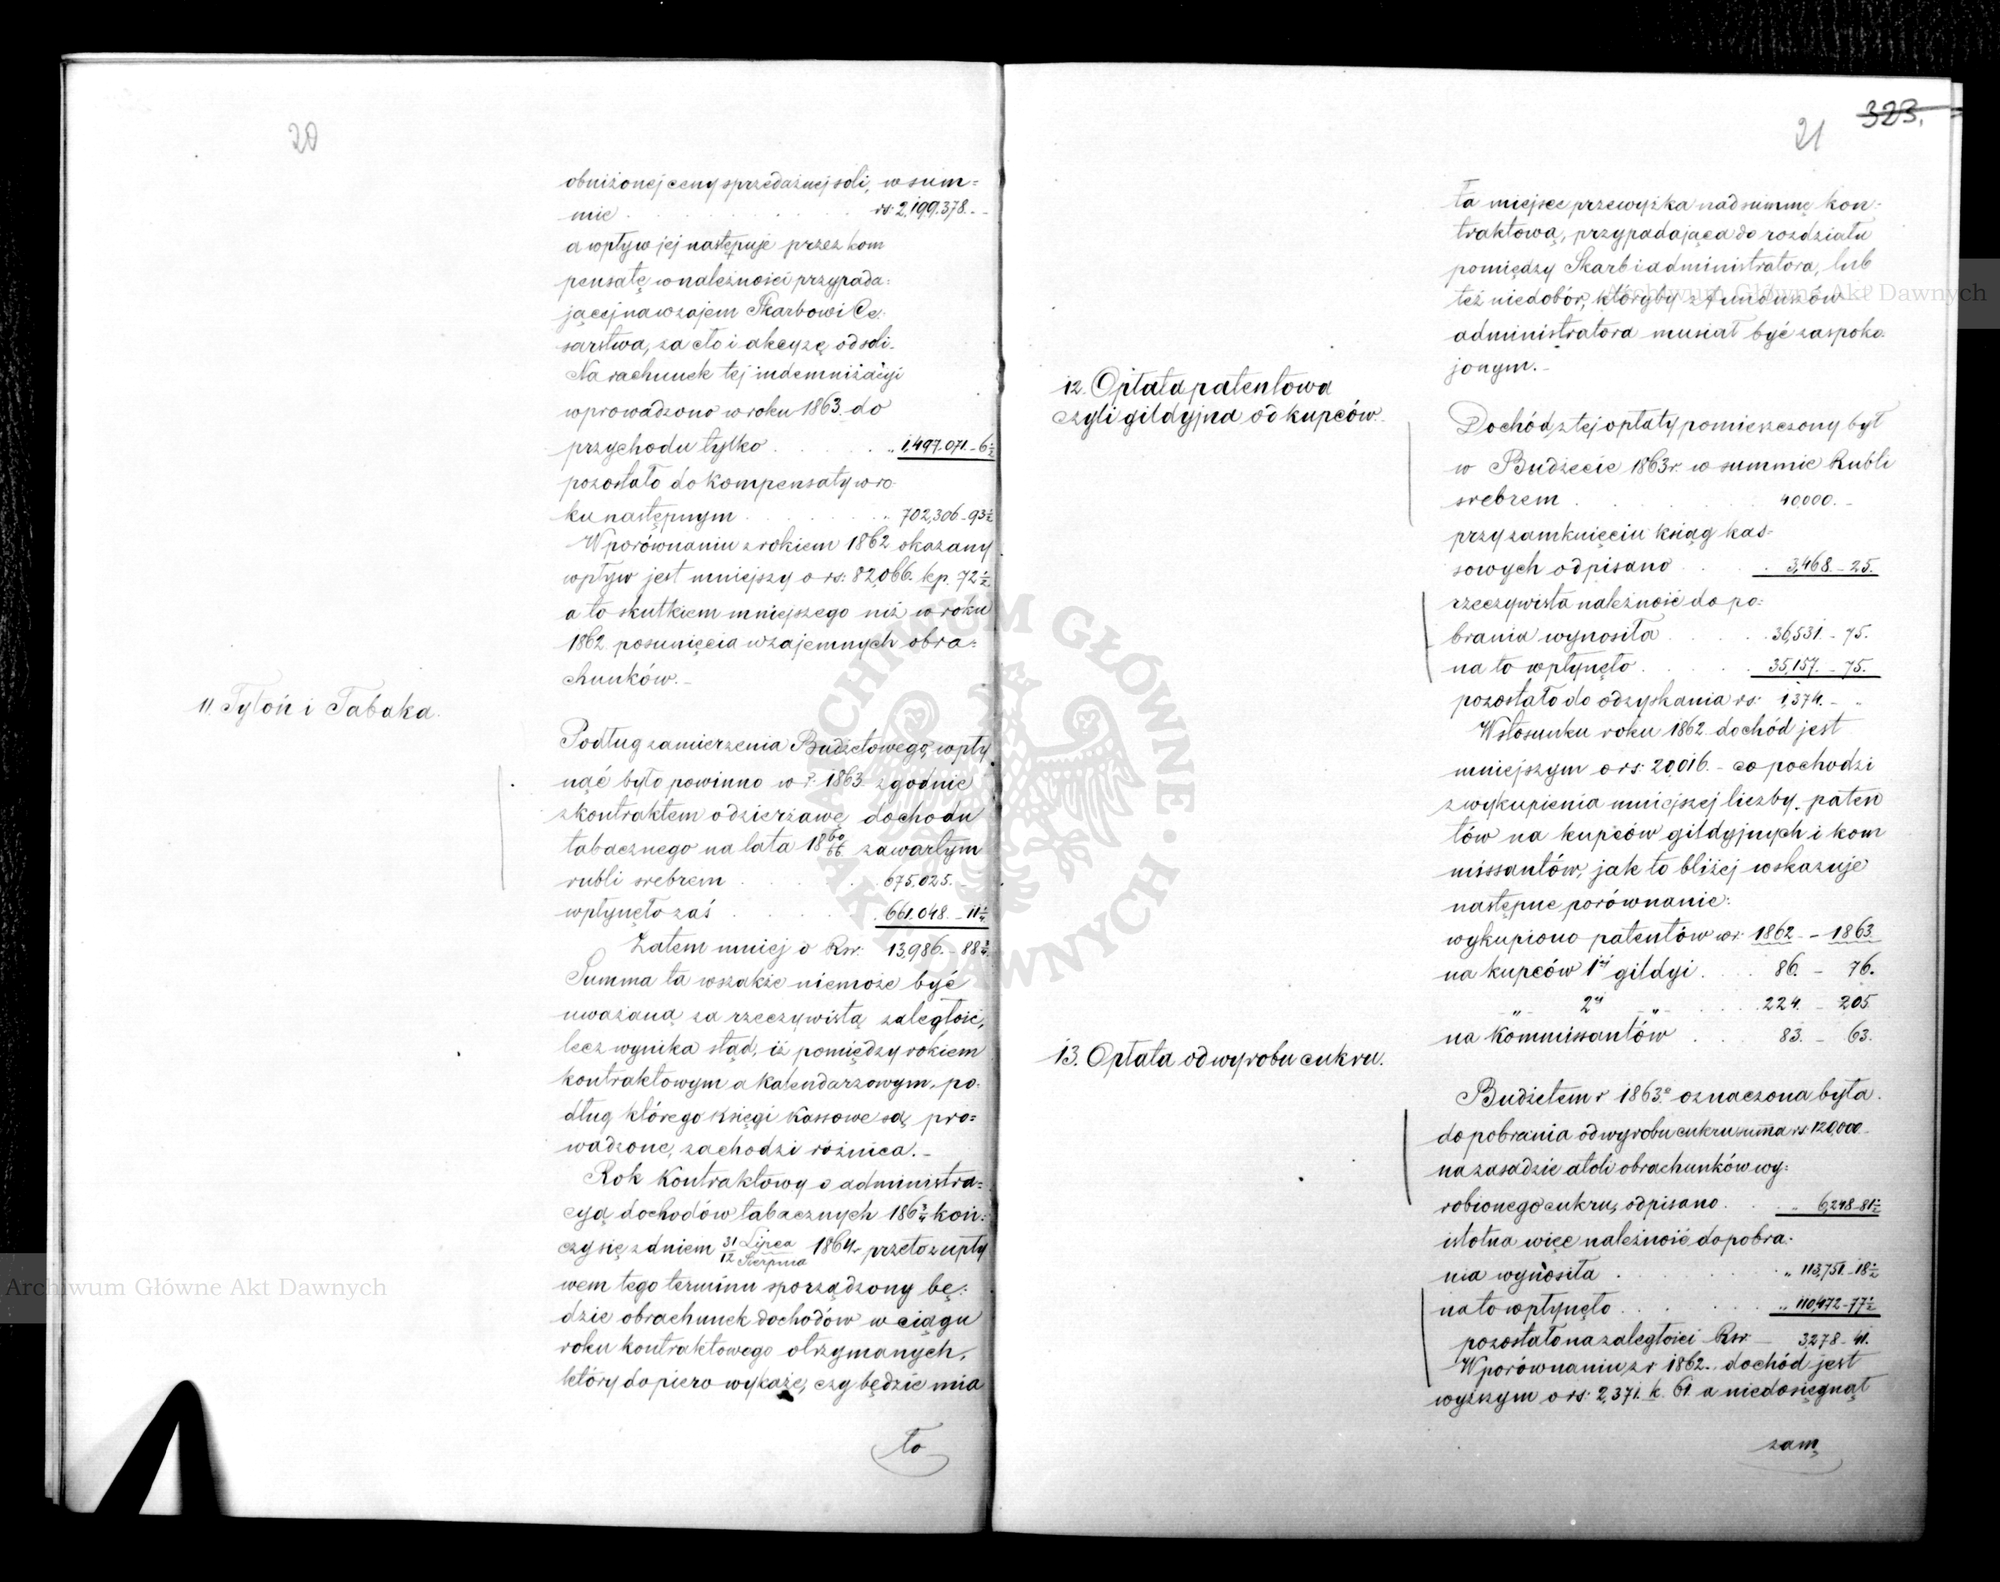 20
obniżonej ceny sprzedażnej soli, w sum=
mie . . . . . rs: 2,199.378. -
a wpływ jej następuje przez kom
pensatę w należności przypada=
jącej nawzajem Skarbowi Ce=
sarstwa, za cło i akcyzę od soli.
Na rachunek tej indemnizacyi
wprowadzono w roku 1863 do
przychodu tylko . . . . „ 1,497.071. - 6½
pozostało do kompensaty w ro
ku następnym . . . . „ 702,306 - 93½
W porównaniu z rokiem 1862 okazany
wpływ jest mniejszy o rs: 82,066. kp. 72½
a to skutkiem mniejszego niż w roku
1862 posunięcia wzajemnych obra=
chunków. -
11. Tytoń i Tabaka.
Podług zamierzenia Budżetowego, wpły
nąć było powinno w r. 1863 zgodnie
z kontraktem o dzierżawę dochodu
tabacznego na lata 18 60/66 zawartym
rubli srebrem . . . . 675,025. -
wpłynęło zaś . . . . 661,048. - 11¼
Zatem mniej o Rsr: 13,986. - 88¾
Summa ta wszakże niemoże być
uważaną za rzeczywistą zaległość,
lecz wynika stąd, iż pomiędzy rokiem
kontraktowym a kalendarzowym, po=
dług którego księgi kassowe są pro=
wadzone, zachodzi różnica. -
Rok Kontraktowy o administra=
cyą dochodów tabacznych 186 3/4 koń=
czy się z dniem 31 Lipca / 12 Sierpnia 1864 r przeto z upły
wem tego terminu sporządzony bę=
dzie obrachunek dochodów w ciągu
roku kontraktowego otrzymanych,
który dopiero wykaże, czy będzie mia
to
323.
21
ła miejsce przewyżka nad summę kon=
traktową, przypadająca do rozdziału
pomiędzy Skarb i administratora, lub
też niedobór, któryby z funduszów
administratora musiał być zaspoko
jonym. -
12. Opłata patentowa
czyli gildyjna od kupców.
Dochód z tej opłaty pomieszczony był
w Budżecie 1863 r. w summie Rubli
srebrem . . . . 40000. -
przy zamknięciu ksiąg kas=
sowych odpisano . . . . 3,468 - 25.
rzeczywista należność do po=
brania wynosiła . . . . 36,531. - 75.
na to wpłynęło . . . . 35,157. - 75.
pozostało do odzyskania rs: 1,374. - „
W stosunku roku 1862 dochód jest
mniejszym o rs: 20,016. - co pochodzi
z wykupienia mniejszej liczby paten
tów na kupców gildyjnych i kom
missantów, jak to bliżej wskazuje
następne porównanie:
wykupiono patentów w r: 1862. - 1863.
na kupców 1ej gildyi . . . 86. - 76.
„ 2ej „ . . . . 224. - 205
na kommissantów . . . 83. - 63.
13. Opłata od wyrobu cukru.
Budżetem r 1863 oznaczona była
do pobrania od wyrobu cukru summa rs 120,000 -
na zasadzie atoli obrachunków wy=
robionego cukru, odpisano . . . „ 6,248 - 81½
istotna więc należność do pobra=
nia wynosiła . . . . „ 113,751. - 18½
na to wpłynęło . . . . „ 110,472 - 77½
pozostało na zaległości Rsr. 3278 - 41.
W porównaniu z r 1862. dochód jest
wyższym o rs: 2,371. k. 61. a niedosięgnął
zam
Archiwum Główne Akt Dawnych
Archiwum Główne Akt Dawnych
ARCHIWUM GŁÓWNE AKT DAWNYCH